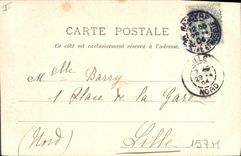 CARTE POSTALE
Ce côté est exclusivement réservé à l'adresse.
Melle Barry
1 Place de la Gare
Lille
(Nord)
LILLE
NORD